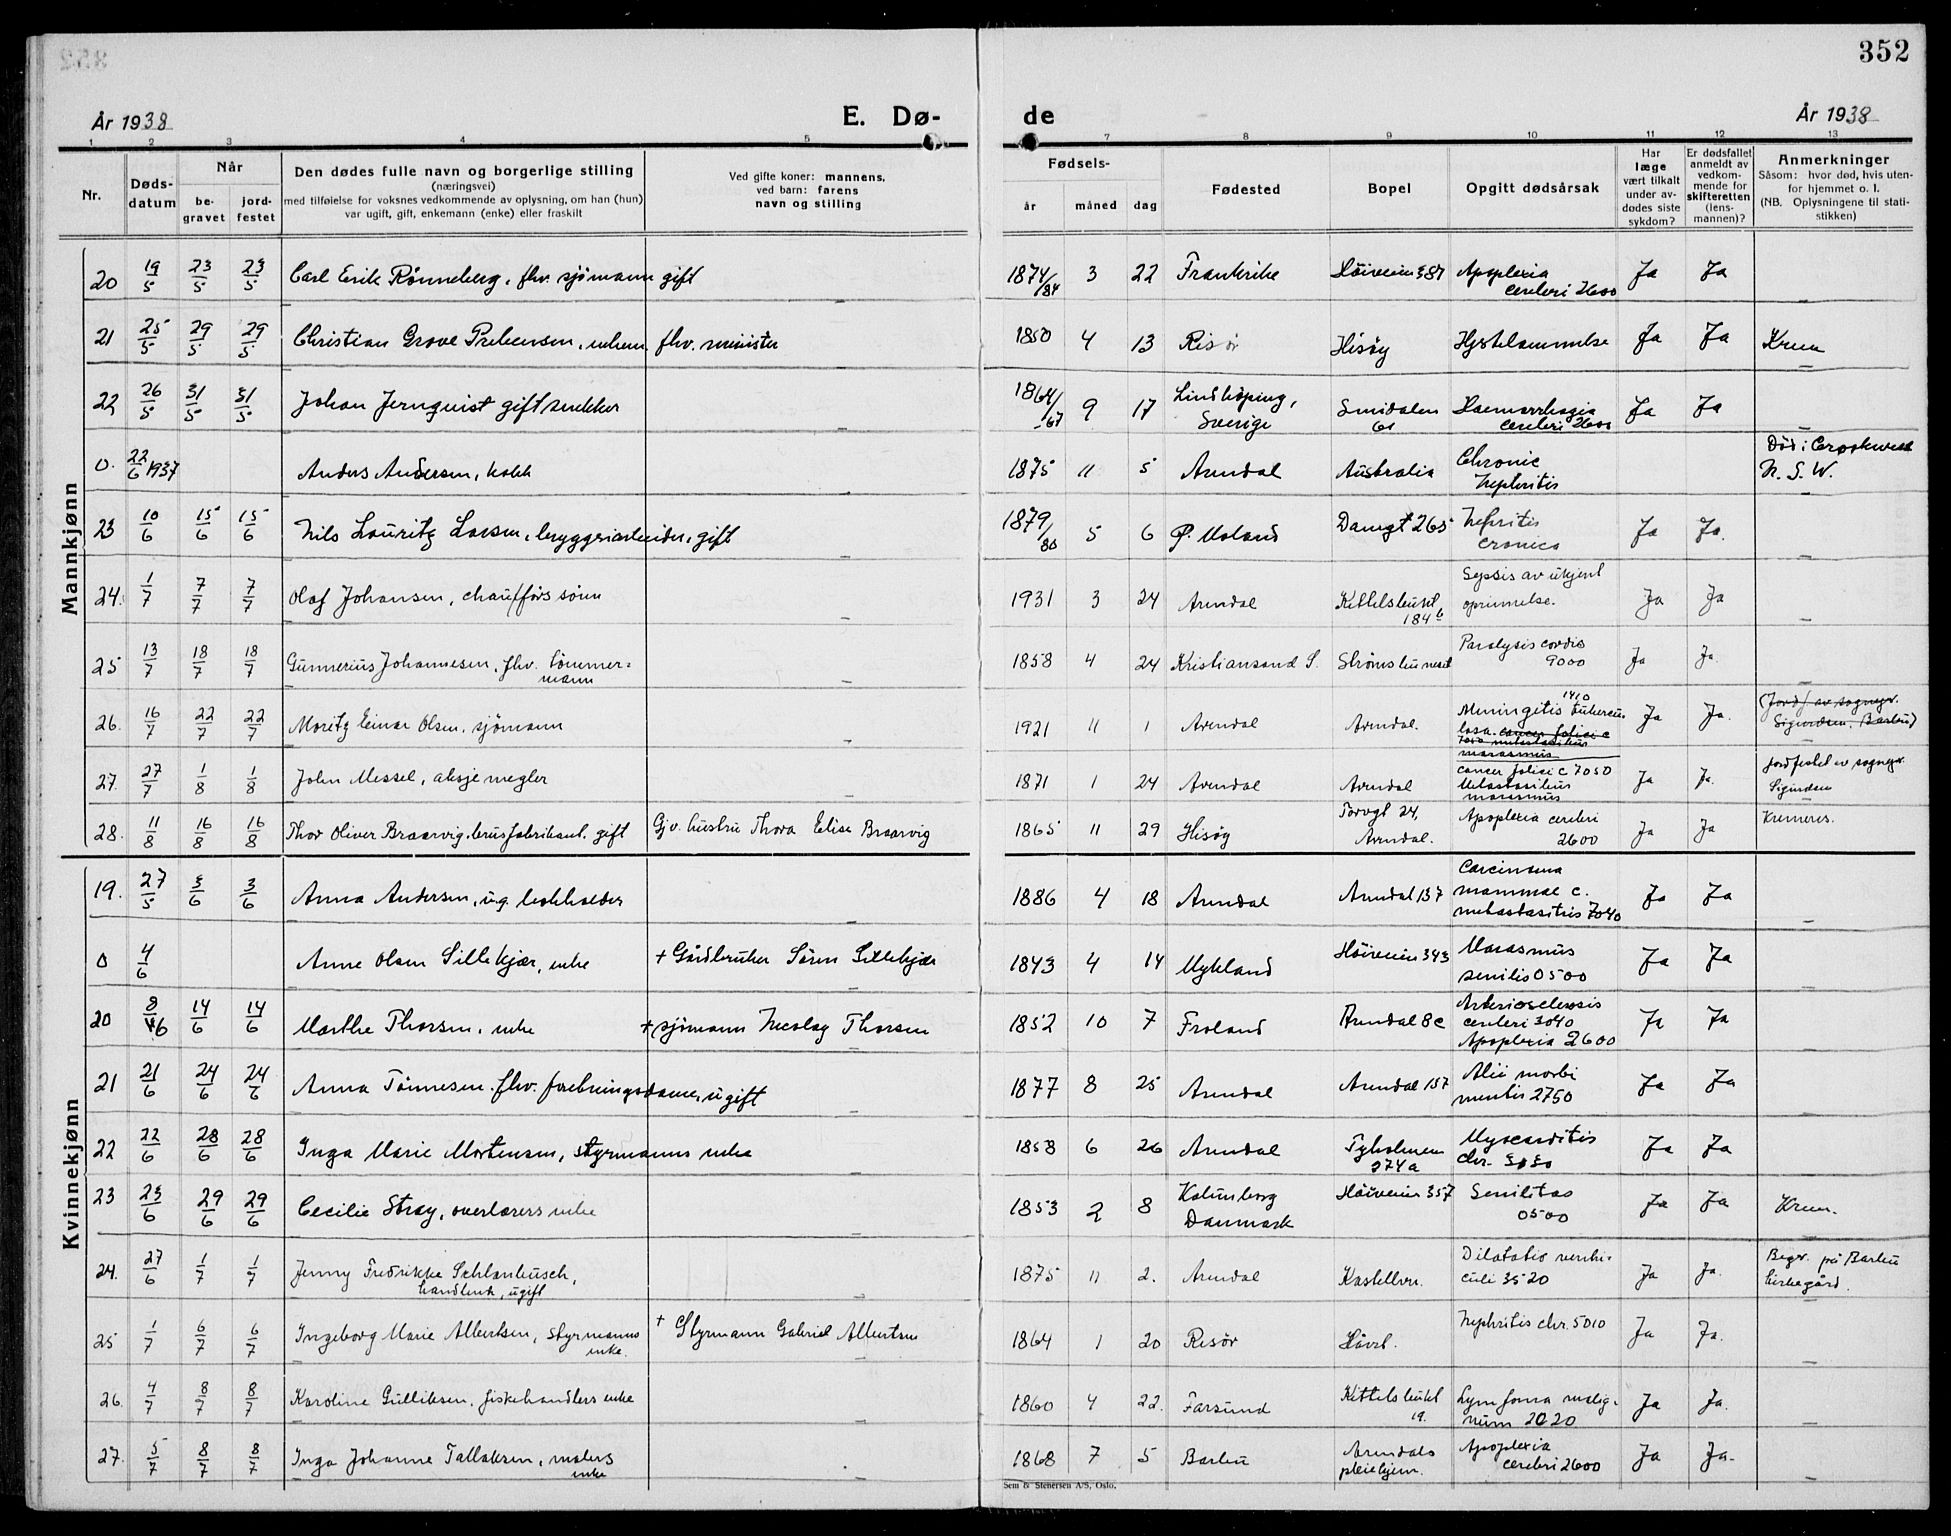 352
År 1938 E. Dø- de År 1938
1 2 3 4 5 7 8 9 10 11 12 13
Nr. Døds-datum Når be-gravet jord-festet
Den dødes fulle navn og borgerlige stilling
(næringsvei)
med tilføielse for voksnes vedkommende av oplysning, om han (hun)
var ugift, gift, enkemann (enke) eller fraskilt
Ved gifte koner: mannens,
ved barn: farens
navn og stilling
Fødsels- år måned dag
Fødested
Bopel
Opgitt dødsårsak
Har læge vært tilkalt under av-dødes siste sykdom?
Er dødsfallet anmeldt av vedkom-mende for skifteretten (lens-mannen)?
Anmerkninger
Såsom: hvor død, hvis uten-
for hjemmet o. l.
(NB. Oplysningene til stati-
stikken)
Mannkjønn
20 19/5 23/5 23/5 Carl Erik Rønneberg, fhv. sjømann gift 1874/84 3 22 Frankrike Høiveien 387 Apoplexia cerebri 2600 Ja Ja
21 25/5 29/5 29/5 Christian Grove Prebensen, enkem. fhv. minister 1850 4 13 Risør Hisøy Hjertelammelse Ja Ja Krem
22 26/5 31/5 31/5 Johan Jernquist gift snekker 1864/-67 9 17 Lindköping, Sverige Smidalen 61 Haemorrhagia cerebri 2600 Ja Ja
0. 22/6 1937 Anders Andersen, kokk 1875 11 5 Arendal Australia Chronic Nephritis Død i Crookwell N. S. W.
23 10/6 15/6 15/6 Nils Lauritz Larsen, bryggeriarbeider, gift 1879/80 5 6 Ø. Moland Damgt 265 Nefritis cronica Ja Ja.
24. 1/7 7/7 7/7 Olaf Johansen, chaufførs sønn 1931 3 24 Arendal Kittelsbukt 184 b Sepsis av ukjent oprinnelse. Ja Ja
25 13/7 18/7 18/7 Gunnerius Johannesen, fhv. tømmer=mann 1858 4 24 Kristiansand S. Strømsbuneset Paralysis cordis 9000 Ja Ja.
26. 16/7 22/7 22/7 Moritz Einar Olsen, sjømann 1921 11 1 Arendal Arendal. Meningitis tubercu-losa 1410 cancer felici c 7050 metastasibus marasmus Ja Ja. (Jordf. av sognepr. Sigurdsen, Barbu)
27. 27/7 1/8 1/8 John Messel, aksjemegler 1871 1 24 Arendal Arendal cancer felici c 7050 Metastasibus marasmus Ja Ja. Jordfestet av sognepr. Sigurdsen
28. 11/8 16/8 16/8 Thor Oliver Braarvig, brusfabrikant. gift Gjv. hustru Thora Elise Braarvig 1865 11 29 Hisøy Torvgt 24, Arendal. Apoplexia cerebri 2600 Ja Ja Kremeres.
Kvinnekjønn
19. 27/5 3/6 3/6 Anna Andersen, ug. bokholder 1886 4 18 Arendal Arendal 137 Carcinoma mammae c. metastasibus 7040 Ja Ja
0 4/6 Anne Olsen Sillekjær, enke + Gårdbruker Søren Sillekjær 1843 4 14 Mykland Høiveien 343 Marasmus senilis 0500 Ja Ja
20 8/6 14/6 14/6 Marthe Thorsen, enke + sjømann Nicolay Thorsen 1852 10 7 Froland Arendal 8c Arteriosclerosis cerebri 3040 Apoplexia 2600 Ja Ja
21 21/6 24/6 24/6 Anna Tønnesen. fhv. forretningsdame, ugift 1877 8 25 Arendal Arendal 157 Alii morbi mentis 2750 Ja Ja
22 22/6 28/6 28/6 Inga Marie Mortensen, styrmanns enke 1858 6 26 Arendal Tyholmen 274a Myocarditis chr. Ja Ja
23 23/6 29/6 29/6 Cecilie Stray, overlærers enke 1853 2 8 Kalundborg Danmark Høiveien 357 Senilitas 0500 Ja Ja Krem.
24. 27/6 1/7 1/7 Jenny Fredrikke Schlanbusch, handlende, ugift 1875 11 2. Arendal Kastellvn. Dilatatio ventri-culi 3520 Ja Ja. Begr. på Barbu kirkegård.
25 1/7 6/7 6/7 Ingeborg Marie Albertsen, styrmanns enke. + Styrmann Gabriel Albertsen 1864 1 20 Risør Håvet. Nephritis chr. 5010 Ja Ja.
26. 4/7 8/7 8/7 Karoline Gulliksen, fiskehandlers enke 1860 4 22. Farsund Kittelsbukt 19. Lymfoma malig-num 2020 Ja Ja.
27. 5/7 8/7 8/7 Inga Johanne Tallaksen, malers enke 1868 7 5 Barbu Arendals pleiehjem. Apoplexia cerebri 2600 Ja Ja.
Sem & Stenersen A/S, Oslo.